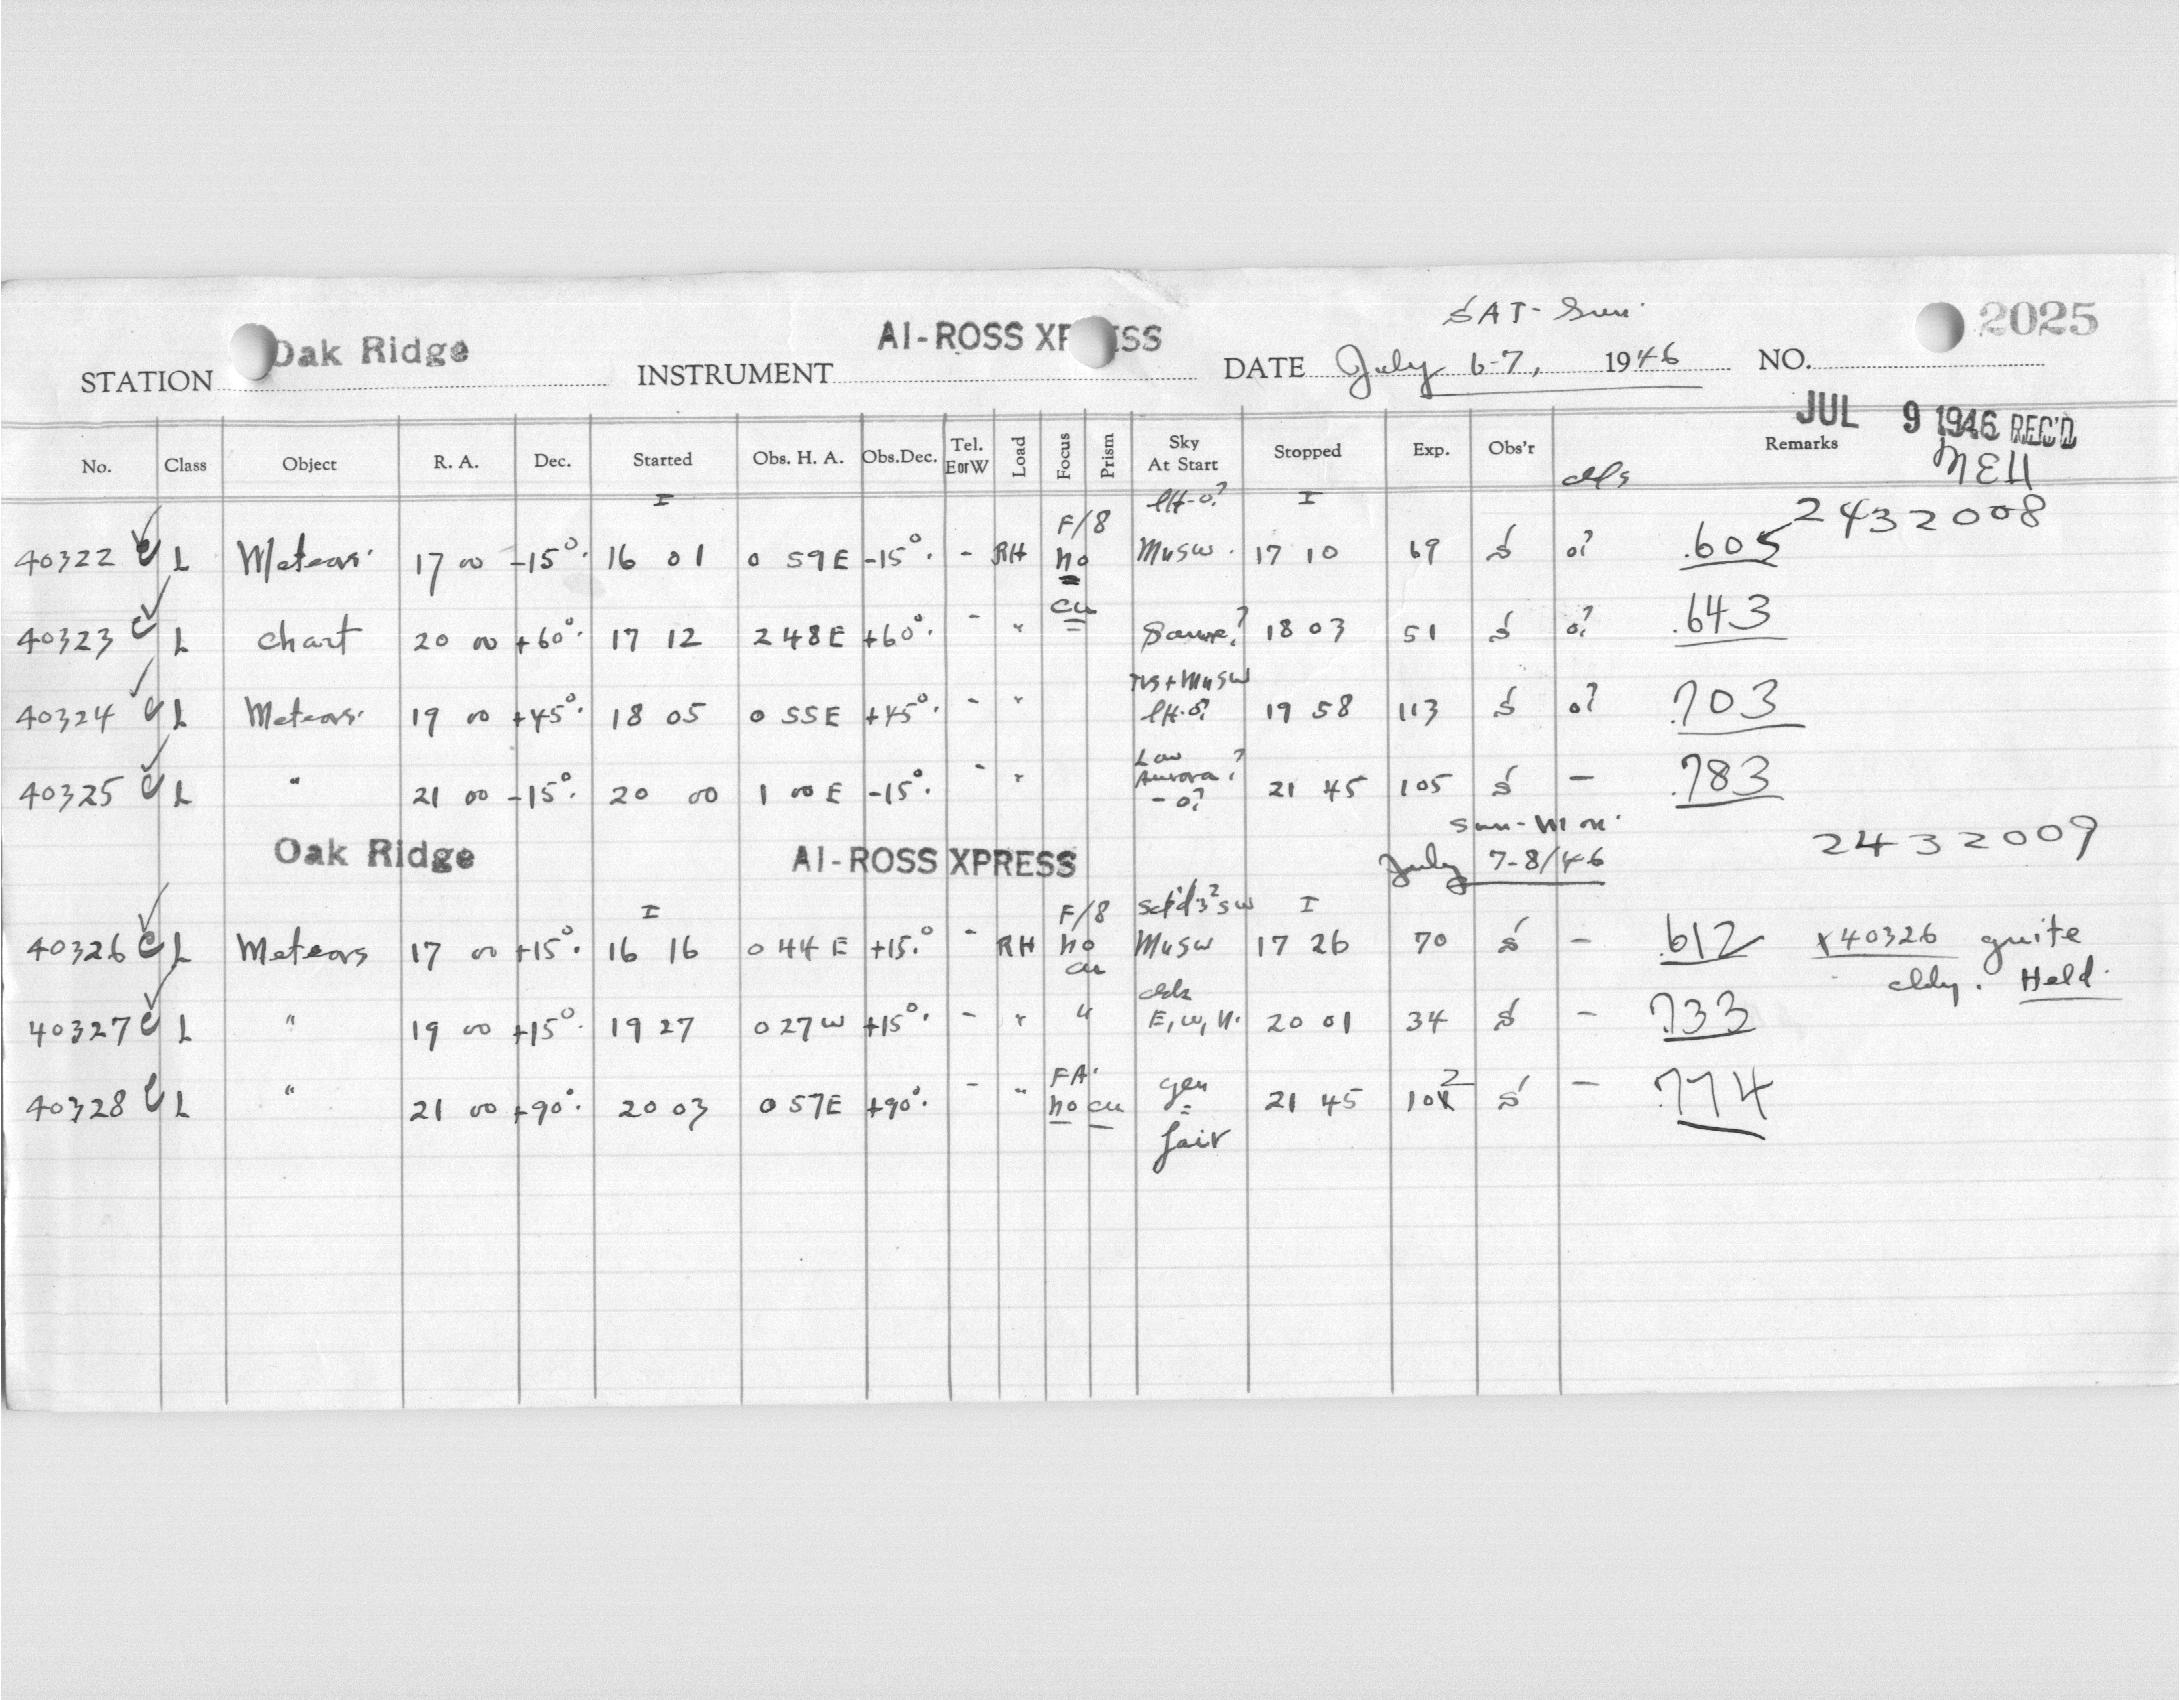 SAT- Sun. 2025
STATION Oak Ridge INSTRUMENT AI-ROSS XP SS DATE July 6-7, 1946 NO.
JUL 9 1946 REC'D
No. Class Object R. A. Dec. Started Obs. H. A. Obs.Dec. Tel. E or W Load Focus Prism Sky At Start Stopped Exp. Obs'r clds Remarks MEH
I I 2432008
40322 L Meteors 17 00 -15°. 16 01 0 59E -15°. - RH F/8 no Mnsw. 17 10 69 S o? .605
cu
40323 L chart 20 00 +60°. 17 12 2 48E +60°. - " Same? 18 03 51 S o? .643
40324 L Meteors. 19 00 +45°. 18 05 0 55E +45°. - " 19 58 113 S o? .703
40325 L " 21 00 -15°. 20 00 1 00E -15°. - " Low Aurora? -o? 21 45 105 S - .783
Sun-Mon.
Oak Ridge AI-ROSS XPRESS July 7-8/46 2432009
I I
40326 L Meteors 17 00 +15°. 16 16 0 44E +15.° - RH F/8 no cu Mnsw 17 26 70 S - .612 x40326 quite
cldy. Held.
40327 L " 19 00 +15°. 19 27 0 27W +15°. - " " clds E, W, N. 20 01 34 S - .733
40328 L " 21 00 +90°. 20 03 0 57E +90°. - " FA. no cu gen = fair 21 45 102 S - .774